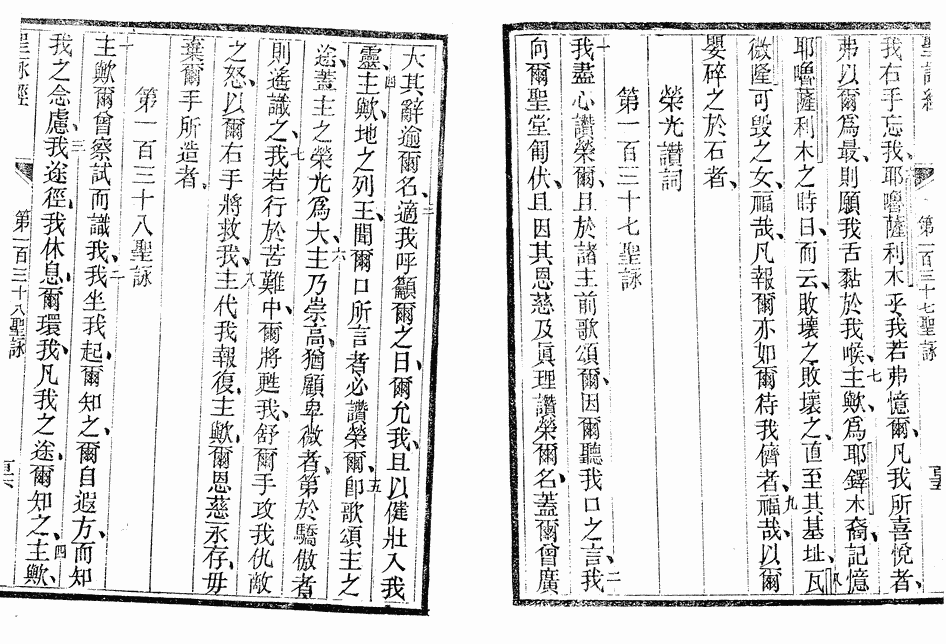 聖詠經
第一百三十七聖詠
我右手忘我、耶嚕薩利木乎我若弗憶爾、凡我所喜悅者、
弗以爾爲最、則願我舌黏於我喉、七主歟、爲耶鐸木裔記憶
耶嚕薩利木之時日、而云、敗壞之敗壞之、直至其基址、八瓦
微隆可毀之女、福哉、凡報爾亦如爾待我儕者、九福哉、以爾
嬰碎之於石者、
榮光讚詞
第一百三十七聖詠
一我盡心讚榮爾、且於諸主前歌頌爾、因爾聽我口之言、二我
向爾聖堂匍伏、且因其恩慈及眞理讚榮爾名、蓋爾曾廣
大其辭逾爾名、三適我呼籲爾之日、爾允我、且以健壯入我
靈、四主歟、地之列王、聞爾口所言者、必讚榮爾、五卽歌頌主之
途、蓋主之榮光爲大、六主乃崇高、猶顧卑微者、第於驕傲者
則遙識之、七我若行於苦難中、爾將甦我、舒爾手攻我仇敵
之怒、以爾右手將救我、八主代我報復、主歟、爾恩慈永存、毋
棄爾手所造者、
第一百三十八聖詠
一主歟、爾曾察試而識我、二我坐我起、爾知之、爾自遐方、而知
我之念慮、三我途徑、我休息、爾環我、凡我之途、爾知之、四主歟、
聖詠經
第一百三十八聖詠